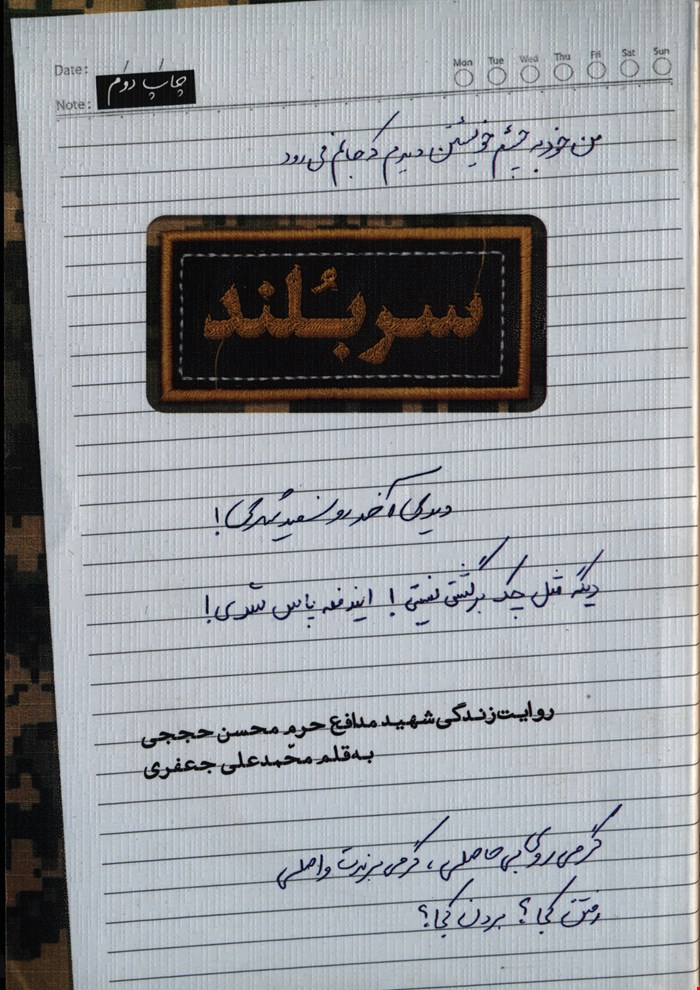 Mon Tue Wed Thu Fri Sat Sun
Date:
چاپ دوم
Note:
من خود به چشم خویشتن دیدم که جانم می رود
سربُلند
دیدی آخر رو سفید شدی!
دیگه مثل چک برگشتی نیستی! ایندفعه پاس شدی!
روایت زندگی شهید مدافع حرم محسن حججی
به قلم محمّدعلی جعفری
گر می روی بی حاصلی، گر می برندت واصلی
رفتن کجا؟ بردن کجا؟